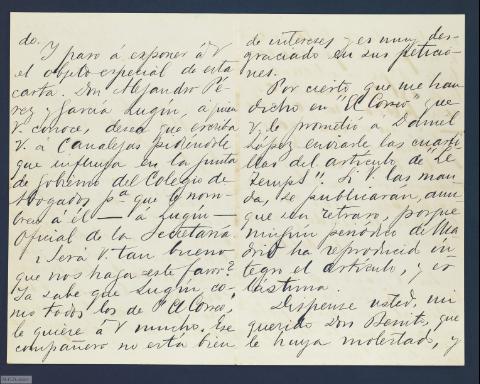 do.
Y paso á exponer á V
el objeto especial de esta
carta. Don Alejandro Pé-
rez y García Lugín, á quien
V. conoce, desea que escriba
V. á Canalejas pidiéndole
que influya en la junta
de Gobierno del Colegio de
Abogados pª que le nom-
bren á él — á Lugín —
Oficial de la Secretaría
¿Será V. tan bueno
que nos haga este favor?
Ya sabe que Lugín, co-
mo todos los de "El Correo",
le quiere á V mucho. Ese
compañero no está bien
de intereses y es muy des-
graciado en sus peticio-
nes.
Por cierto, que me han
dicho en "El Correo" que
V. le prometió á Daniel
López enviarle las cuarti-
llas del artículo de "Le
Temps". Si V. las man-
da, se publicarán, aun-
que con retraso, porque
ningún periódico de Ma-
drid ha reproducido ín-
tegro el artículo, y es
lástima.
Dispense usted, mi
querido Don Benito, que
le haya molestado, y